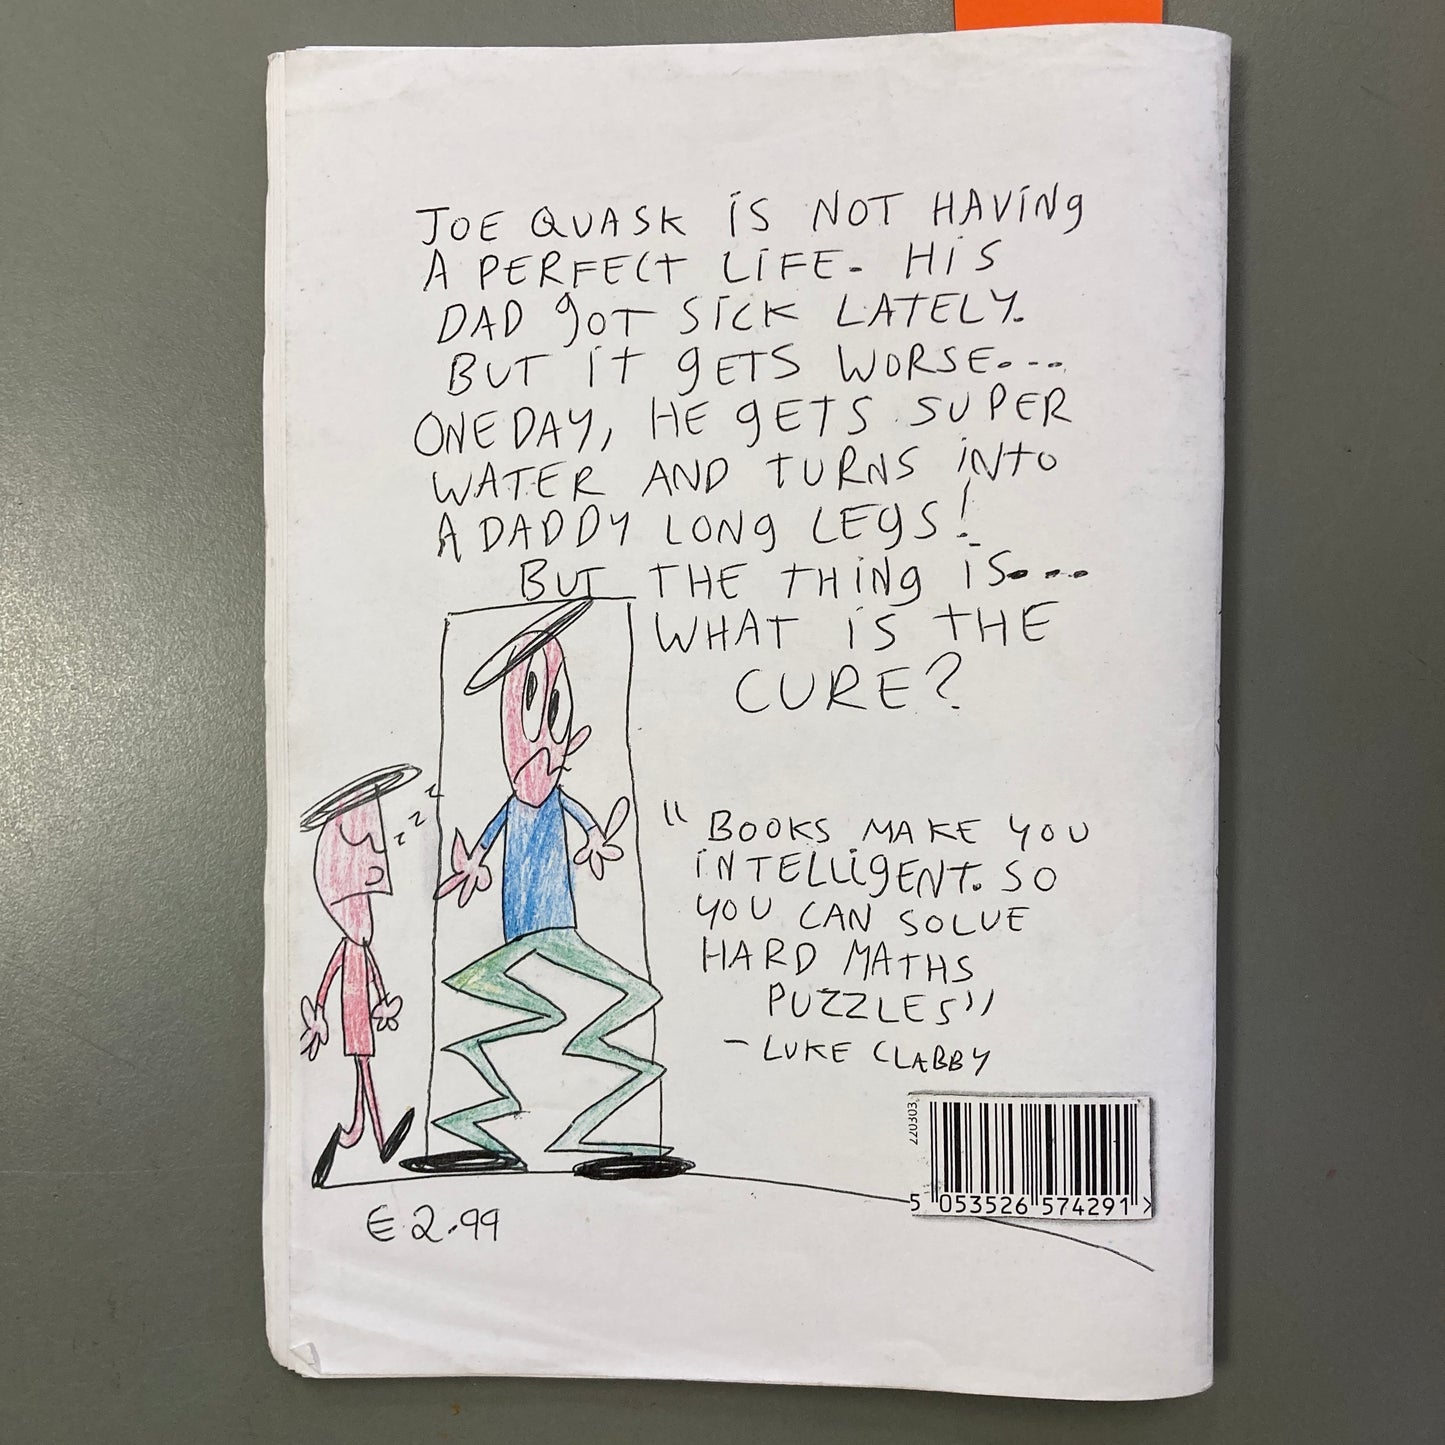 JOE QUASK iS NOT HAViNg
A PERFECT LiFE. HiS
DAD gOT SiCK LATELY.
BUT iT gETS WORSE...
ONE DAY, HE gETS SUPER
WATER AND TURNS iNTO
A DADDY LONg LEgS!
BUT THE THiNg iS...
WHAT iS THE
CURE?
z z z
"BOOKS MAKE YOU
iNTELLigENT. SO
YOU CAN SOLVE
HARD MATHS
PUZZLES"
- LUKE CLABBY
303077
5 053526 574291 >
€2.99